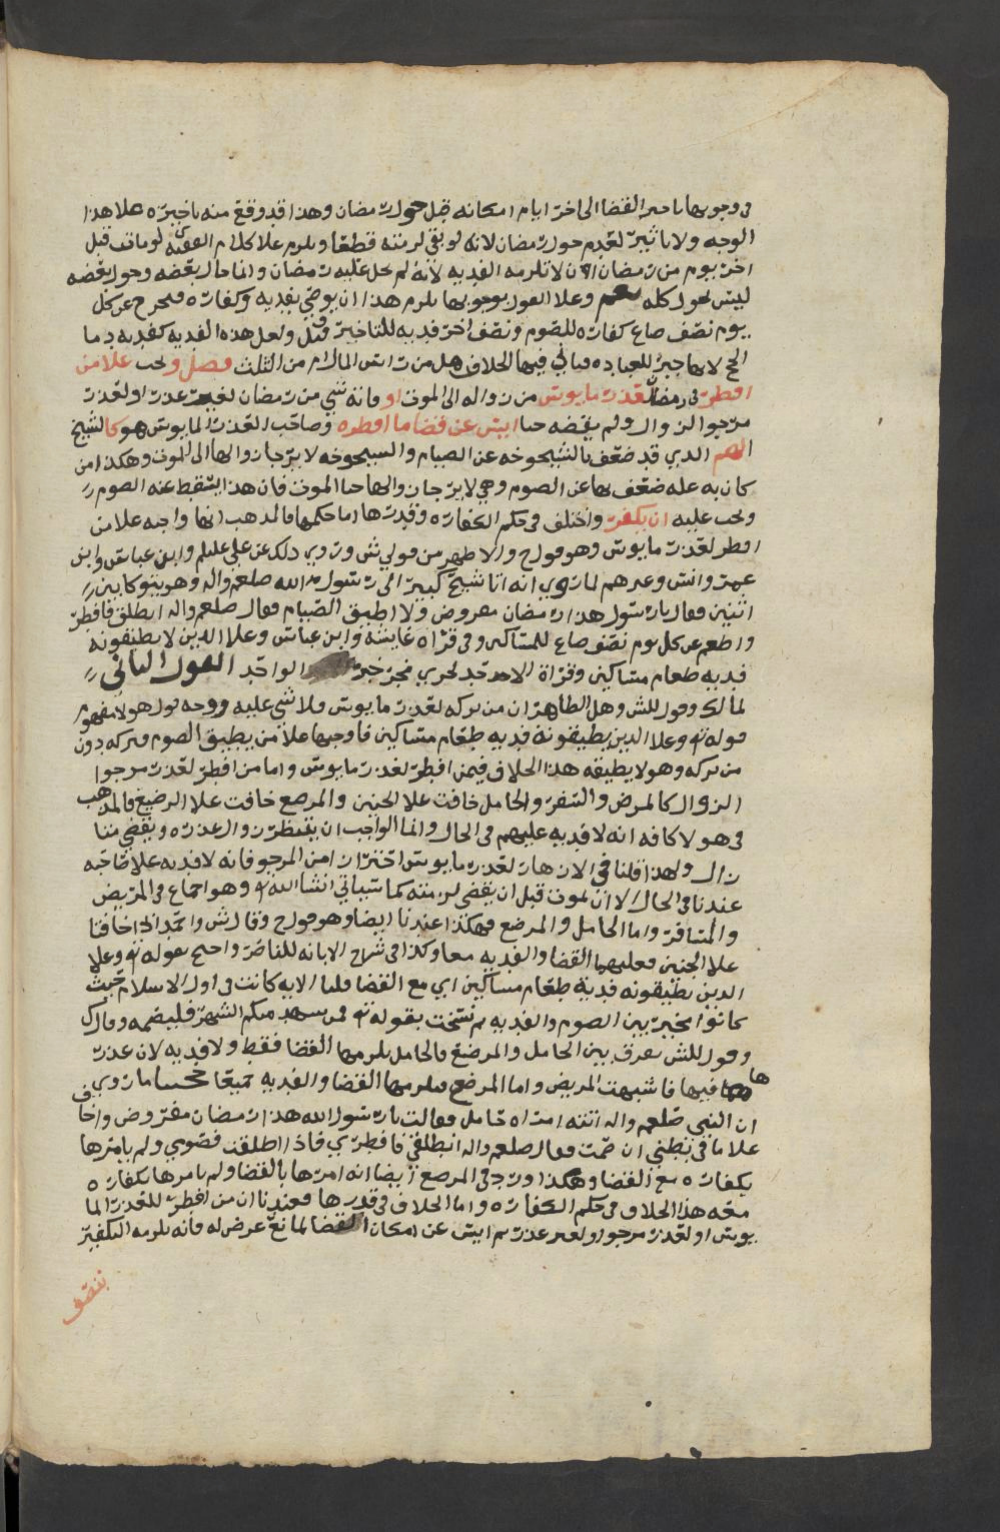 في وجوبها تاخير القضا الى اخر ايام امكانه قبل حول رمضان وهذا قد وقع منه تاخيره علا هذا
الوجه ولا تاثير لعدم حول رمضان لانه لو بقي لزمته قطعا ويلزم علا كلام الفقيه ى لو مات قبل
اخر يوم من رمضان ان لا تلزمه الفديه لانه لم يحل عليه رمضان وانما حال بعضه وحول بعضه
ليس كحول كله نعم وعلا القول بوجوبها يلزم هذا ان يوصي بفديه وكفاره فيخرج عن كل
يوم نصف صاع كفاره للصوم ونصف اخر فديه للتاخير قيل ولعل هذه الفديه كفديه دما
الحج لانها جبر للعباده فياتي فيها الخلاف هل من راس المال ام من الثلث فصل وتجب علا من
افطر في رمضان لعذر مايوس من زواله الى الموت او فاته شي من رمضان لغير عذر او لعذر
مرجو الزوال ولم يقضه حتا ايس عن قضا ما افطره وصاحب العذر المايوس هو كالشيخ
الهم الدي قد ضعف بالشيخوخه عن الصيام والشيخوخه لا يرجا زوالها الى الموت وهكذا من
كان به عله ضعف بها عن الصوم وهي لا يرجا زوالها حتا الموت فان هذا يسقط عنه الصوم
وتجب عليه ان يكفر واختلف في حكم الكفاره وقدرها اما حكمها فالمذهب انها واجبه علا من
افطر لعذر مايوس وهو قول ح والاظهر من قولي ش وروي ذلك عن علي عليلم وابن عباس وابن
عمر وانس وغيرهم لما روي انه اتا شيخ كبير الى رسول الله صلعم واله وهو يتوكا بين
اثنين فقال يا رسول هذا رمضان مفروض ولا اطيق الصيام فقال صلعم واله انطلق فافطر
واطعم عن كل يوم نصف صاع للمساكين وفي قراه عايشه وابن عباس وعلا الذين لا يطيقونه
فديه طعام مساكين وقراة الاحد تجري مجرى خبر الواحد القول الثاني
لمالك وقول للش وهل الظاهر ان من تركه لعذر مايوس فلا شي عليه ووجه قول هولا مفهوم
قوله تع وعلا الذين يطيقونه فديه طعام مساكين فاوجبها علا من يطيق الصوم وتركه دون
من تركه وهو لا يطيقه هذا الخلاف فيمن افطر لعذر مايوس واما من افطر لعذر مرجوا
الزوال كالمرض والسفر والحامل خافت علا الجنين والمرضع خافت علا الرضيع فالمذهب
في هولا كافه انه لا فديه عليهم في الحال وانما الواجب ان ينتظر زوال عذره ويقضي متا
زال ولهذا قلنا في الازهار لعذر مايوس احترازا من المرجو فانه لا فديه علا صاحبه
عندنا في الحال الا ان يموت قبل ان يقضي لزمته كما سياتي انشا الله تع وهو اجماع في المريض
والمسافر واما الحامل والمرضع فهكذا عندنا ايضا وهو قول ح وقال ش واحمد اذا خافتا
علا الجنين فعليهما القضا والفديه معا وكذا في شرح الابانه للناصر واحتج بقوله تع وعلا
الذين يطيقونه فدية طعام مساكين اي مع القضا قلنا الايه كانت في اول الاسلام حيث
كانوا مخير بين الصوم والفديه ثم نسخت بقوله تع فمن شهد منكم الشهر فليصمه وقال ك
وقول للش يفرق بين الحامل والمرضع فالحامل يلزمها القضا فقط ولا فديه لان عذر
ها فيها فاشبهت المريض واما المرضع فيلزمها القضا والفديه جميعا حجتنا ما روي
ان النبي صلعم واله اتته امراه حامل فقالت يا رسول الله هذا رمضان مفروض واخاف
علا ما في بطني ان صمت فقال صلعم واله انطلقي فافطري فاذا اطلقت فصومي ولم يامرها
بكفاره مع القضا وهكذا ورد في المرضع ايضا انه امرها بالقضا ولم يامرها بكفاره
معه هذا الخلاف في حكم الكفاره واما الخلاف في قدرها فعندنا ان من افطر للعذر الما
يوس او لعذر مرجوا ولغير عذر ثم ايس عن امكان القضا لمانع عرض له فانه يلزمه التكفير
بنصف